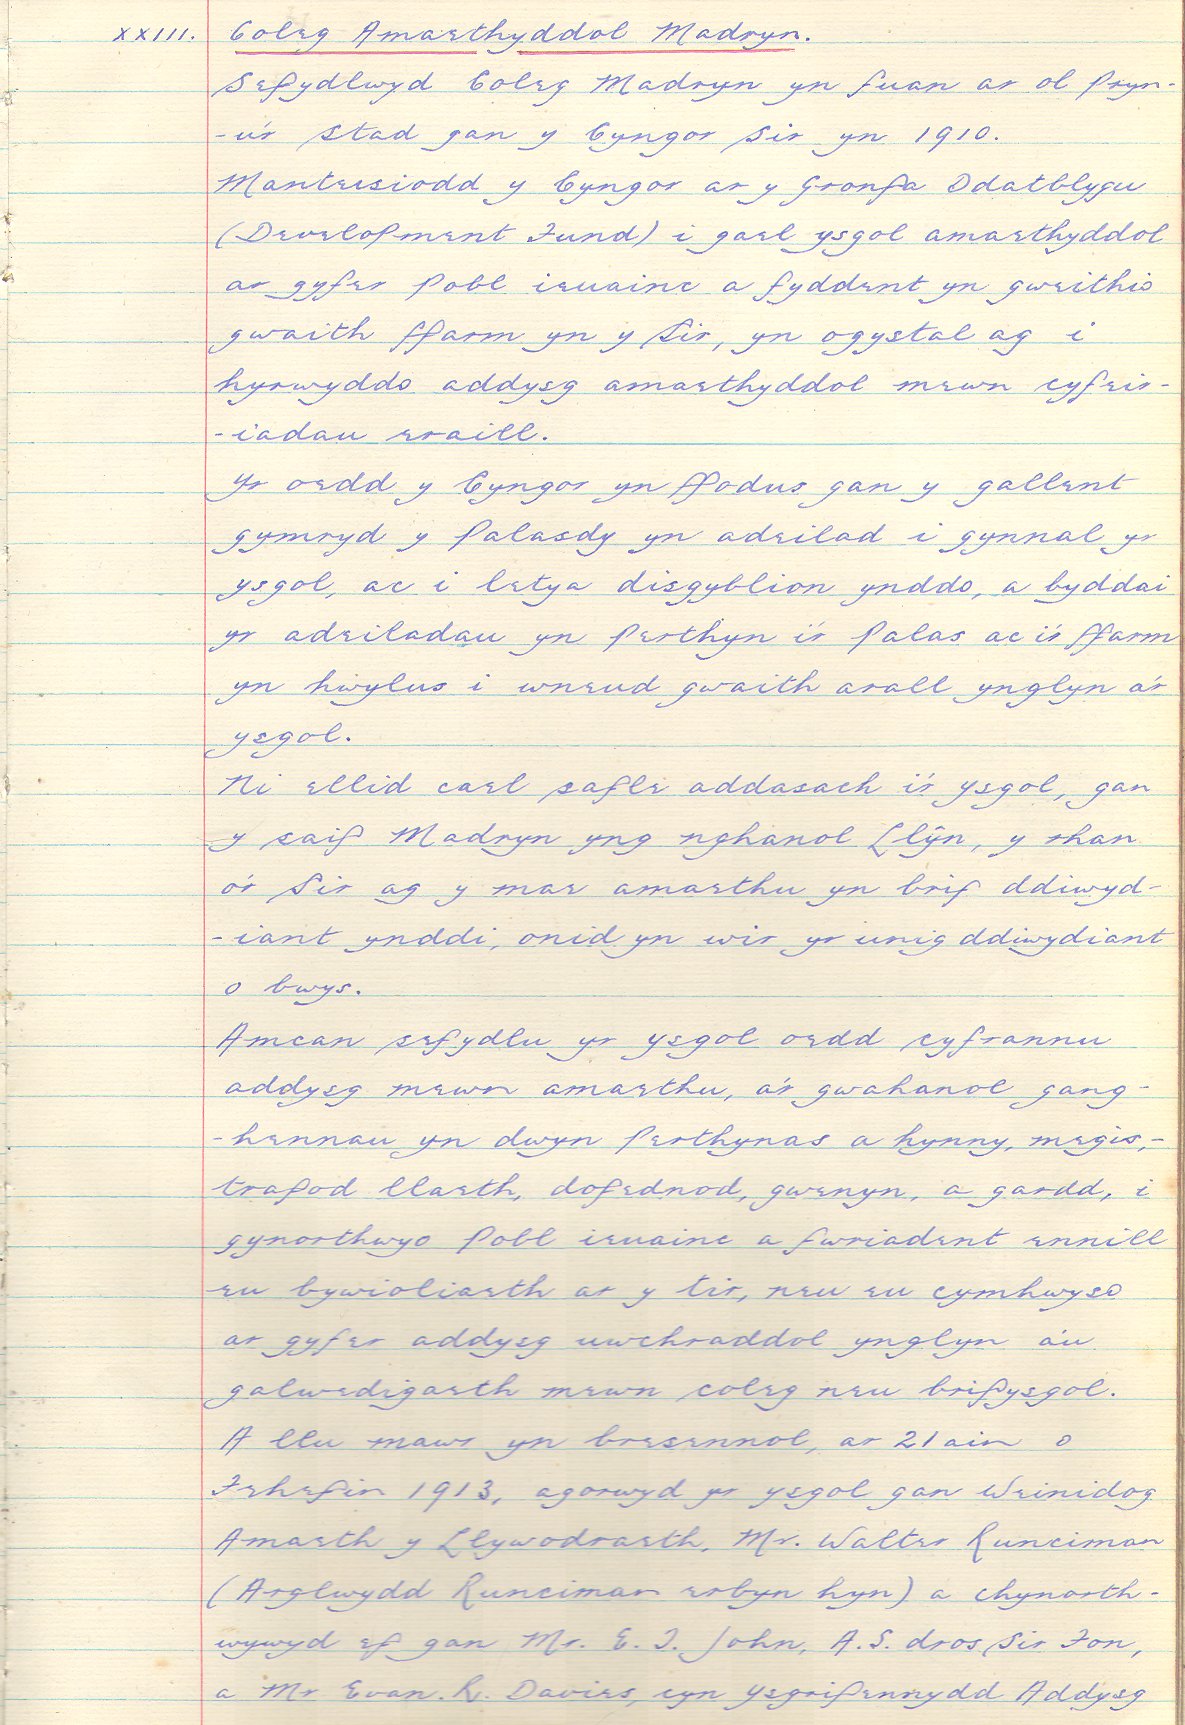 XXIII. Coleg Amaethyddol Madryn.
Sefydlwyd Coleg Madryn yn fuan ar ol pryn-
-u'r stad gan y Cyngor Sir yn 1910.
Manteisiodd y Cyngor ar y Gronfa Ddatblygu
(Development Fund) i gael ysgol amaethyddol
ar gyfer pobl ieuainc a fyddent yn gweithio
gwaith ffarm yn y Sir, yn ogystal ag i
hyrwyddo addysg amaethyddol mewn cyfeir-
-iadau eraill.
Yr oedd y Cyngor yn ffodus gan y gallent
gymryd y Palasdy yn adeilad i gynnal yr
ysgol, ac i letya disgyblion ynddo, a byddai
yr adeiladau yn perthyn i'r Palas ac i'r ffarm
yn hwylus i wneud gwaith arall ynglyn a'r
ysgol.
Ni ellid cael safle addasach i'r ysgol, gan
y saif Madryn yng nghanol Llŷn, y rhan
o'r Sir ag y mae amaethu yn brif ddiwyd-
-iant ynddi, onid yn wir yr unig ddiwydiant
o bwys.
Amcan sefydlu yr ysgol oedd cyfrannu
addysg mewn amaethu, a'r gwahanol gang-
-hennau yn dwyn perthynas a hynny, megis,-
trafod llaeth, dofednod, gwenyn, a gardd, i
gynorthwyo pobl ieuainc a fwriadent ennill
eu bywioliaeth ar y tir, neu eu cymhwyso
ar gyfer addysg uwchraddol ynglyn a'u
galwedigaeth mewn coleg neu brifysgol.
A llu mawr yn bresennol, ar 21 ain o
Fehefin 1913, agorwyd yr ysgol gan Weinidog
Amaeth y Llywodraeth, Mr. Walter Runciman
(Arglwydd Runciman erbyn hyn) a chynorth-
wywyd ef gan Mr. E. T. John, A.S. dros Sir Fon,
a Mr Evan. R. Davies, cyn Ysgrifennydd Addysg